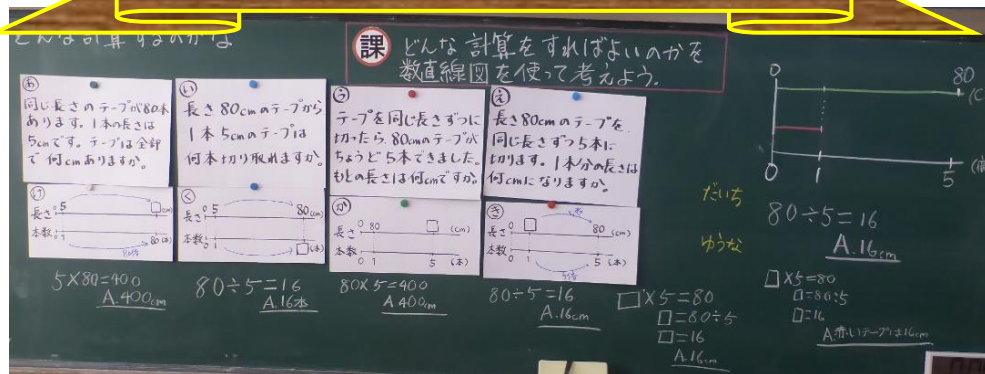 どんな計算するのかな
課 どんな計算をすればよいのかを
数直線図を使って考えよう。
あ
同じ長さのテープが80本
あります。1本の長さは
5cmです。テープは全部
で何cmありますか。
い
長さ80cmのテープから
1本5cmのテープは
何本切り取れますか。
う
テープを同じ長さずつに
切ったら、80cmのテープが
ちょうど5本できました。
もとの長さは何cmですか。
え
長さ80cmのテープを
同じ長さずつ5本に
切ります。1本分の長さは
何cmになりますか。
け
長さ 0 5 □(cm)
本数 0 1 80(本)
5×80=400
A.400cm
く
長さ 0 5 80(cm)
本数 0 1 □(本)
80÷5=16
A.16本
か
長さ 0 80 □ (cm)
本数 0 1 5 (本)
80×5=400
A.400cm
き
長さ 0 □ 80 (cm)
本数 0 1 5 (本)
5倍
80÷5=16
A.16cm
□×5=80
□=80÷5
□=16
A.16cm
0 80
0 1 5
だいち
80÷5=16
A.16cm
ゆうな
□×5=80
□=80÷5
□=16
A.赤いテープは16cm